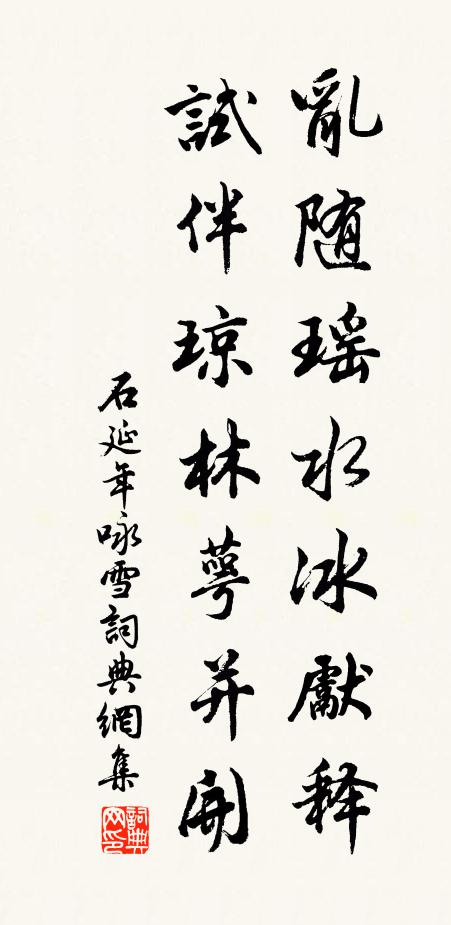 亂随瑶水冰獻释
試伴琼林萼并開
石延年咏雪詞典網集
詞典网印